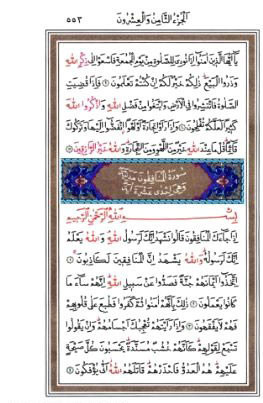 الجزء الثامن والعشرون ٥٥٣
يا أيها الذين آمنوا إذا نودي للصلاة من يوم الجمعة فاسعوا إلى ذكر الله
وذروا البيع ذلكم خير لكم إن كنتم تعلمون فإذا قضيت
الصلاة فانتشروا في الأرض وابتغوا من فضل الله واذكروا الله
كثيرا لعلكم تفلحون وإذا رأوا تجارة أو لهوا انفضوا إليها وتركوك
قائما قل ما عند الله خير من اللهو ومن التجارة والله خير الرازقين
سورة المنافقون مدنية
وهي إحدى عشرة آية
بسم الله الرحمن الرحيم
إذا جاءك المنافقون قالوا نشهد إنك لرسول الله والله يعلم
إنك لرسوله والله يشهد إن المنافقين لكاذبون
اتخذوا أيمانهم جنة فصدوا عن سبيل الله إنهم ساء ما
كانوا يعملون ذلك بأنهم آمنوا ثم كفروا فطبع على قلوبهم
فهم لا يفقهون وإذا رأيتهم تعجبك أجسامهم وإن يقولوا
تسمع لقولهم كأنهم خشب مسندة يحسبون كل صيحة
عليهم هم العدو فاحذرهم قاتلهم الله أنى يؤفكون